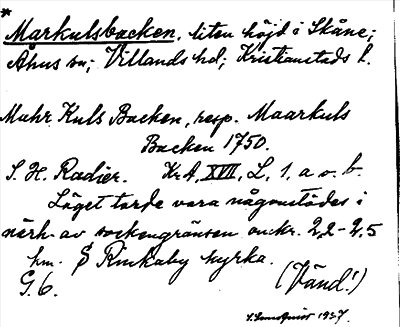 *
Markulsbacken, liten höjd i Skåne;
Åhus sn; Villands hd; Kristianstads l.
Muhr Kuls Backen, resp. Maarkuls
Backen 1750.
S. H. Radier. Kr. A, XVII, L, 1, a o. b.
Läget torde vara någonstädes i
närh. av sockengränsen omkr. 2,2-2,5
km. S Rinkaby kyrka.
G. 6. (Vänd!)
1937.